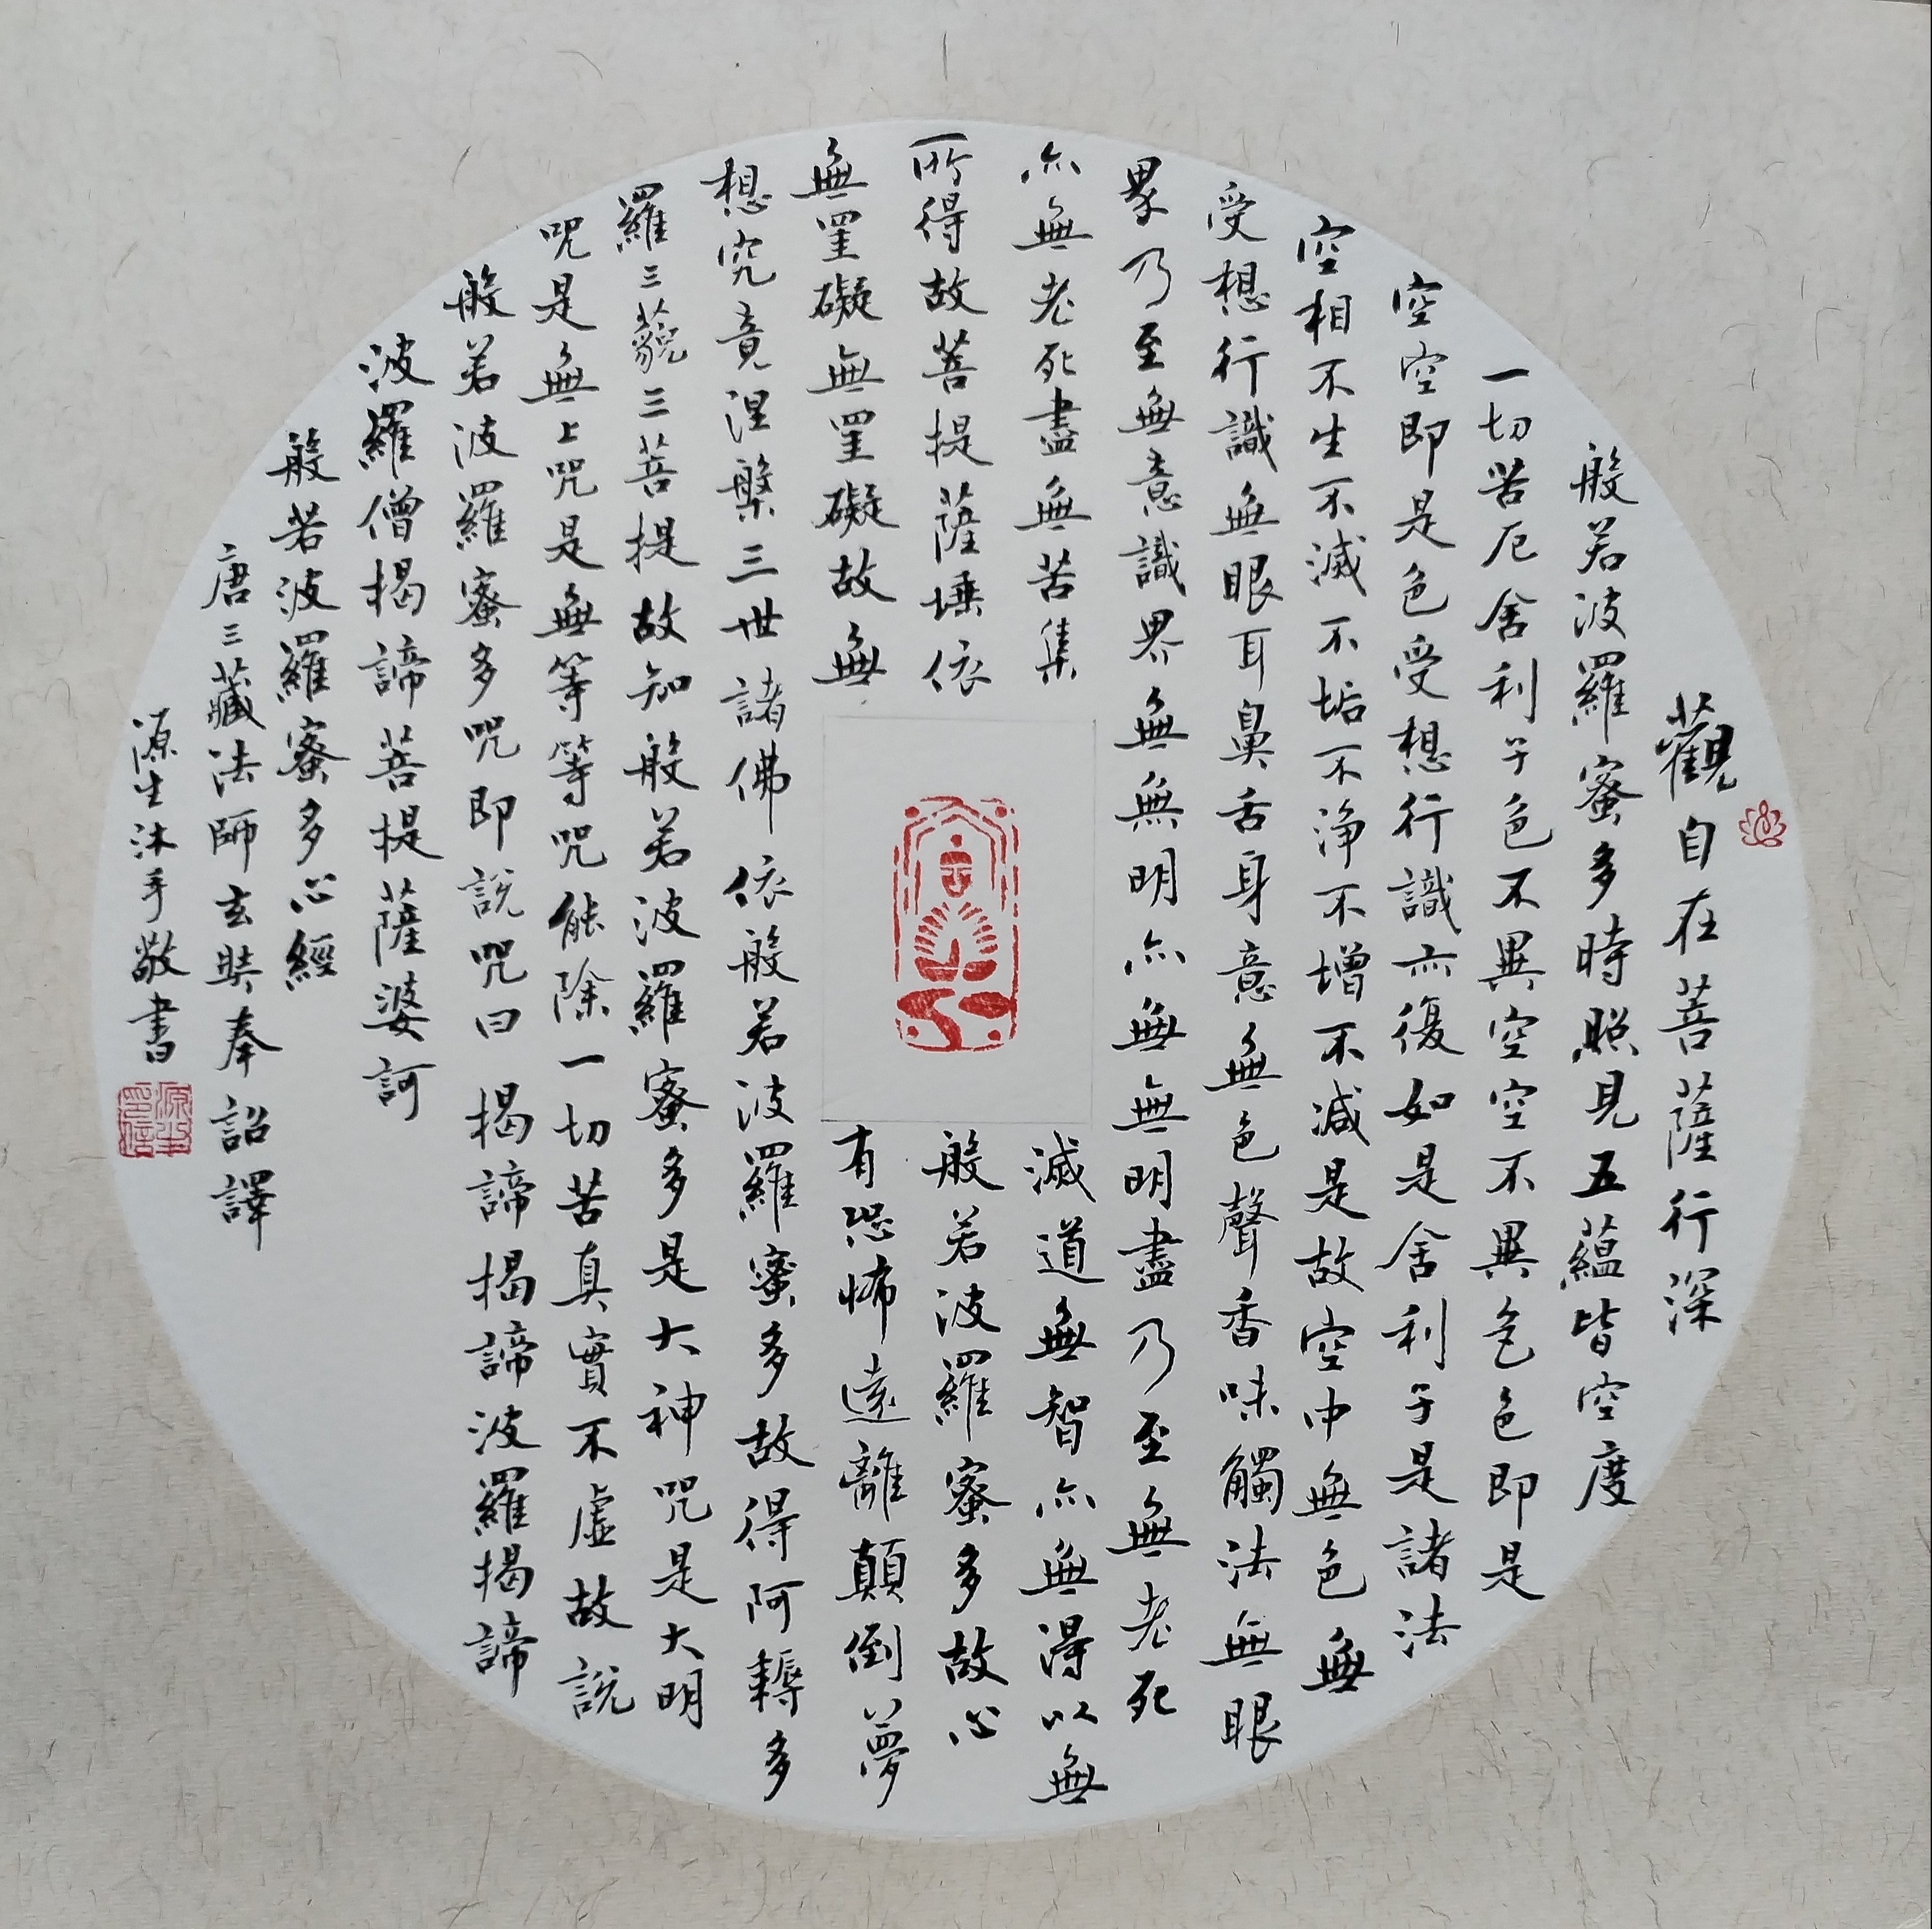 觀自在菩薩行深
般若波羅蜜多時照見五蘊皆空度
一切苦厄舍利子色不異空空不異色色即是
空空即是色受想行識亦復如是舍利子是諸法
空相不生不滅不垢不淨不增不減是故空中無色無
受想行識無眼耳鼻舌身意無色聲香味觸法無眼
界乃至無意識界無無明亦無無明盡乃至無老死
亦無老死盡無苦集滅道無智亦無得以無
所得故菩提薩埵依般若波羅蜜多故心
無罣礙無罣礙故無有恐怖遠離顛倒夢
想究竟涅槃三世諸佛依般若波羅蜜多故得阿耨多
羅三藐三菩提故知般若波羅蜜多是大神咒是大明
咒是無上咒是無等等咒能除一切苦真實不虛故說
般若波羅蜜多咒即說咒曰 揭諦揭諦波羅揭諦
波羅僧揭諦菩提薩婆訶
般若波羅蜜多心經
唐三藏法師玄奘奉詔譯
源生沐手敬書
源生印信